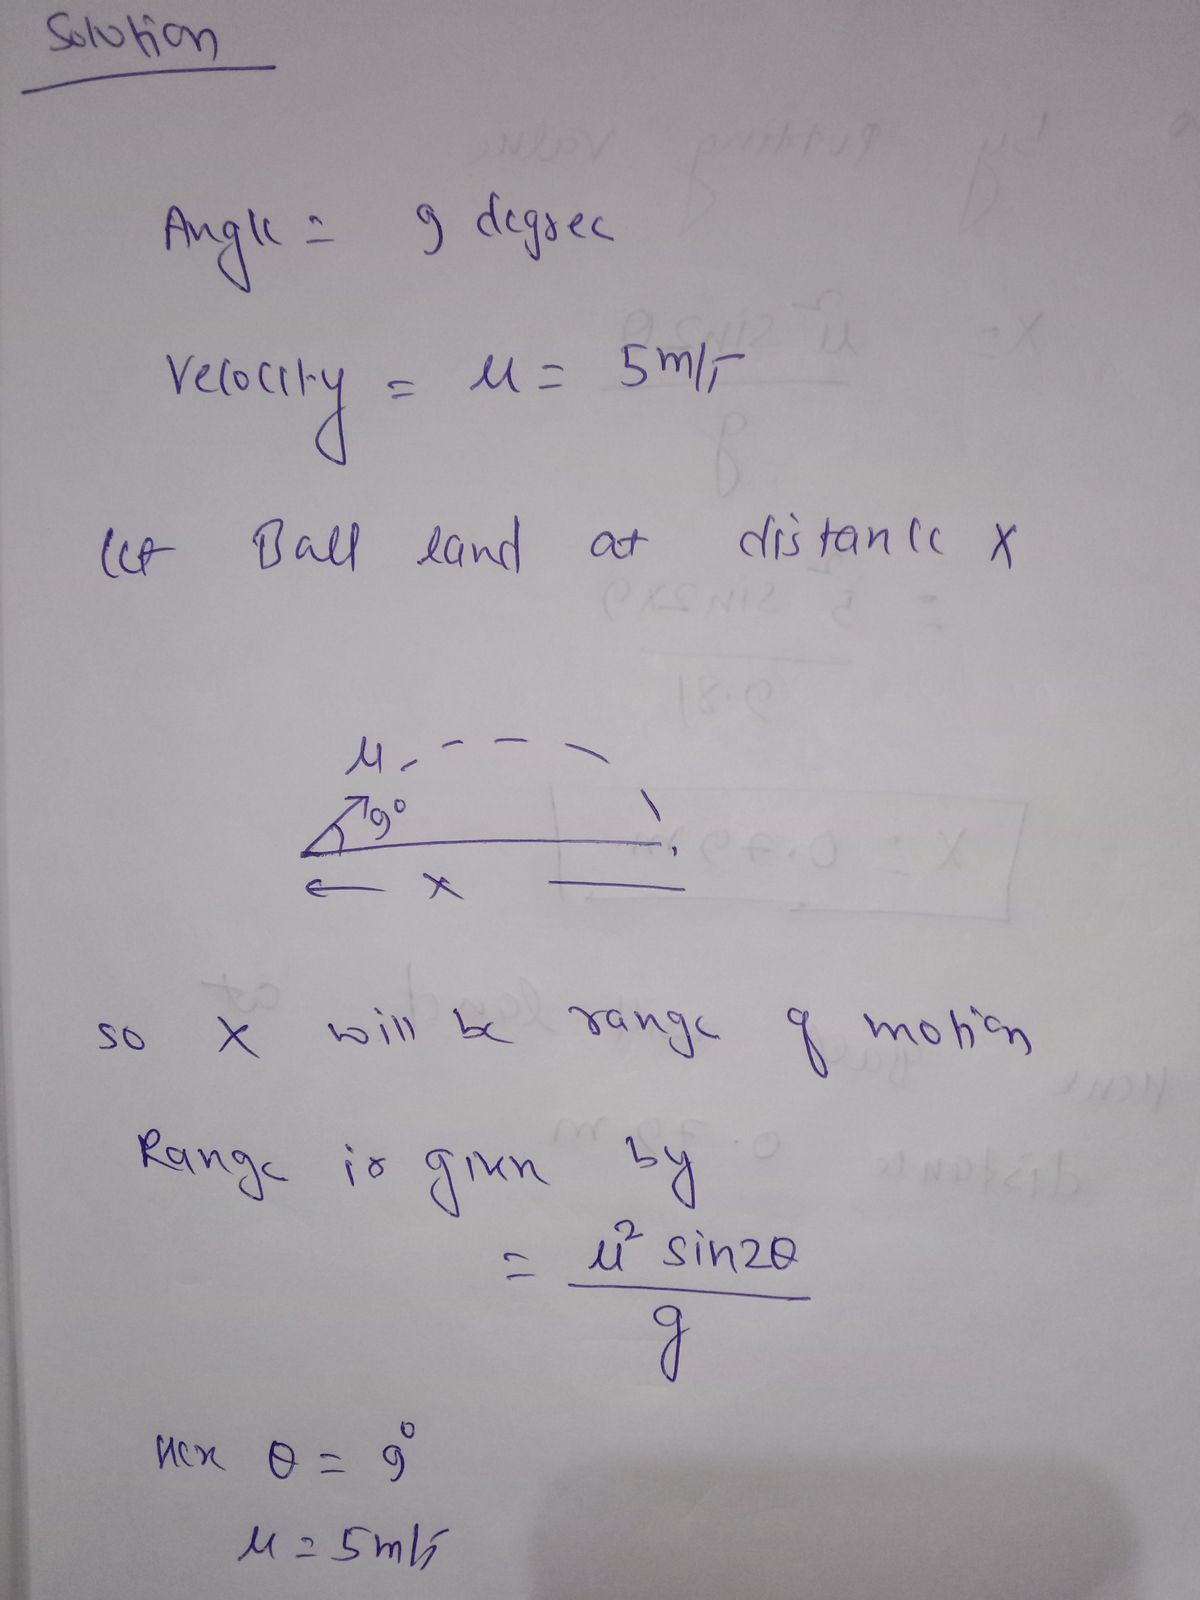 Solution
Angle = 9 degree
Velocity = u = 5 m/s
let Ball land at distance x
u
9°
x
so x will be range of motion
Range is given by
= u² sin2θ
g
Here θ = 9°
u = 5 m/s